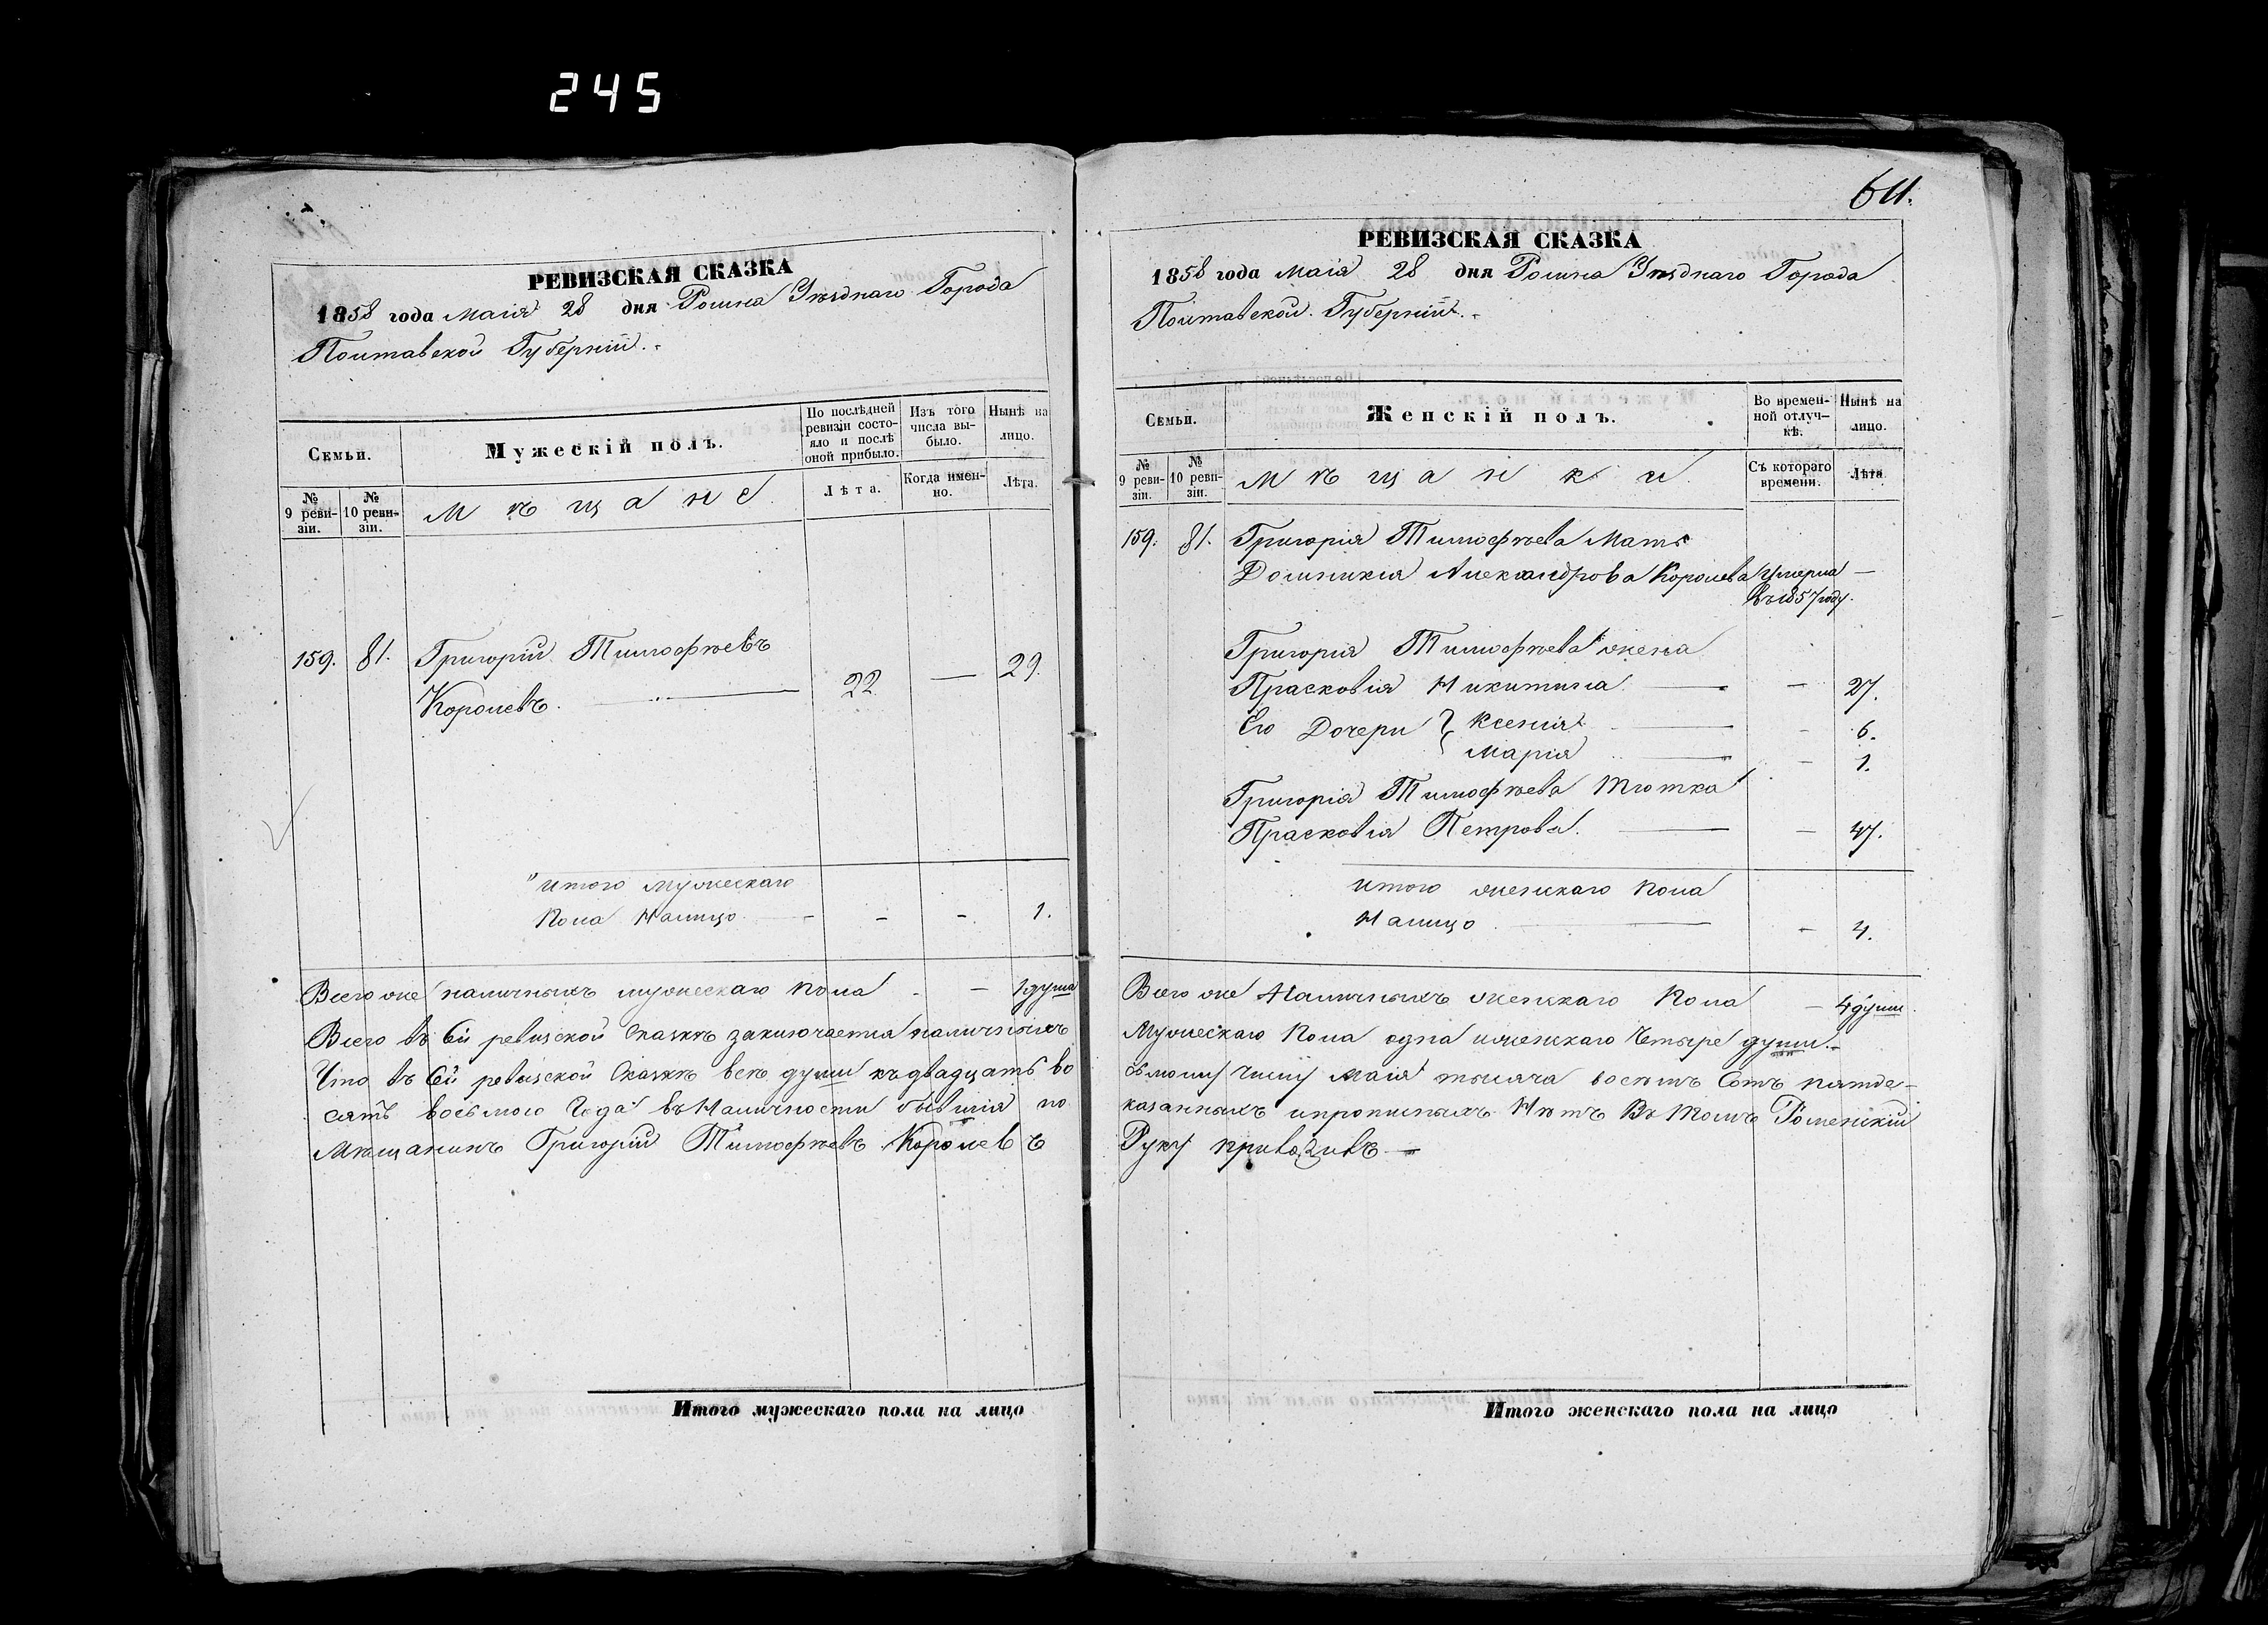 245
РЕВИЗСКАЯ СКАЗКА
1858 года Маія 28 дня Ромна Уѣзднаго Города
Полтавской Губерніи.
Семьи.
Мужескій полъ.
По послѣдней ревизіи состояло и послѣ оной прибыло.
Изъ того числа выбыло.
Нынѣ на лицо.
№ 9 ревизіи.
№ 10 ревизіи.
Мѣщане
Лѣта.
Когда именно.
Лѣта.
159. 81. Григорій Тимофѣевъ
Королевъ. 22 — 29.
Итого мужескаго
пола Налицо - - - 1.
Всего же наличныхъ мужескаго пола - — 1 душа
Всего въ сей ревизской Сказкѣ заключается наличныхъ
Что въ Сей ревизской Сказкѣ всѣ души къ двадцать во
сятъ восьмого Года въ Наличности бывшія по
Мѣщанинъ Григорій Тимофѣевъ Королевъ
Итого мужескаго пола на лицо
611.
РЕВИЗСКАЯ СКАЗКА
1858 года Маія 28 дня Ромна Уѣзднаго Города
Полтавской Губерніи.
Семьи.
Женскій полъ.
Во временной отлучкѣ.
Нынѣ на лицо.
№ 9 ревизіи.
№ 10 ревизіи.
Мѣщанки
Съ котораго времени.
Лѣта
159. 81. Григорія Тимофѣева Мать
Домникія Александрова Королева Умерла —
въ 1857 году.
Григорія Тимофѣева жена
Прасковія Никитина — — 27.
Его Дочери { Ксенія — - 6.
Марія — - 1.
Григорія Тимофѣева Тютка
Прасковія Петрова. — — 47.
Итого женскаго пола
Налицо — — 4.
Всего же Наличныхъ женскаго пола — 4 души
Мужескаго пола одна и женскаго Четыре души.
сьмому Числу Маія тысяча восѣмъ Сотъ пятде-
казанныхъ и прописныхъ Нѣтъ Въ томъ Роменскій
Руку приложивъ —
Итого женскаго пола на лицо